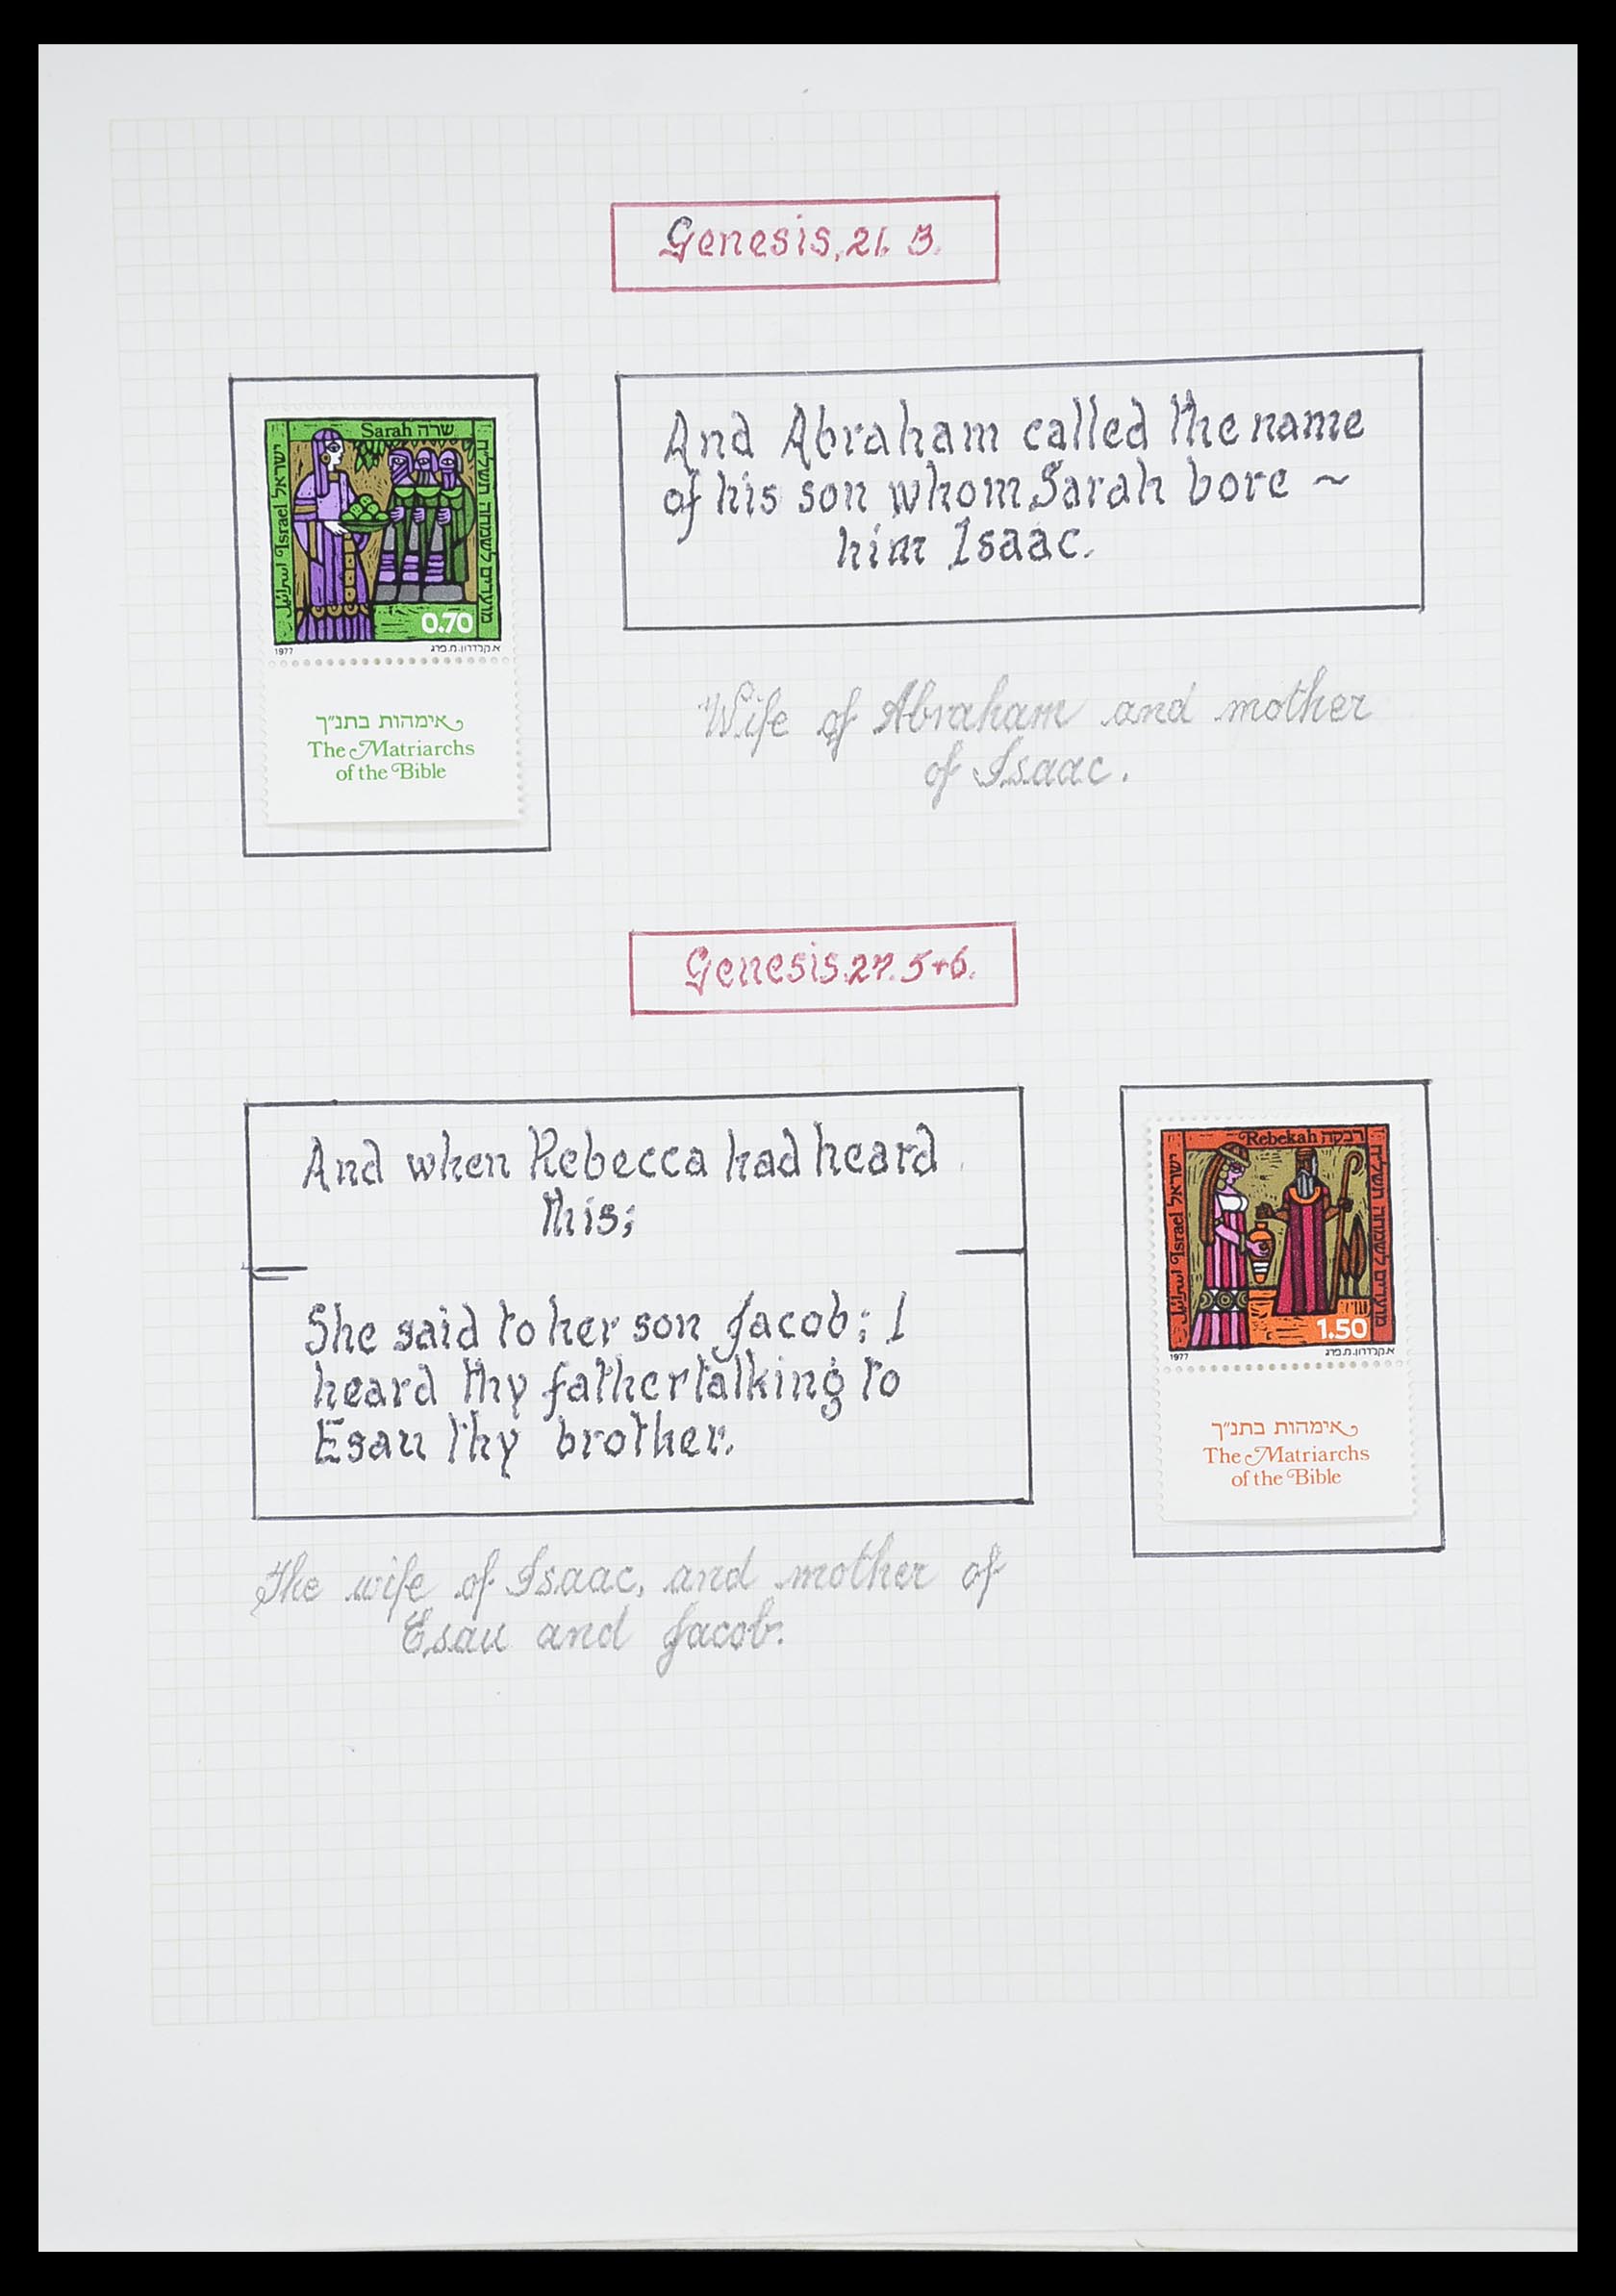 Genesis, 21. 3.
Sarah שרה
ישראל Israel اسرائيل
מועדים לשמחה תשל״ח
0.70
1977
א.קלדרון.מ.פרג
אימהות בתנ״ך
The Matriarchs
of the Bible
And Abraham called the name
of his son whom Sarah bore ~
him Isaac.
Wife of Abraham and mother
of Isaac.
Genesis.27. 5+6.
And when Rebecca had heard
this;
She said to her son Jacob; I
heard thy father talking to
Esau thy brother.
Rebekah רבקה
ישראל Israel اسرائيل
מועדים לשמחה תשל״ח
1.50
1977
א.קלדרון.מ.פרג
אימהות בתנ״ך
The Matriarchs
of the Bible
The wife of Isaac, and mother of
Esau and Jacob.